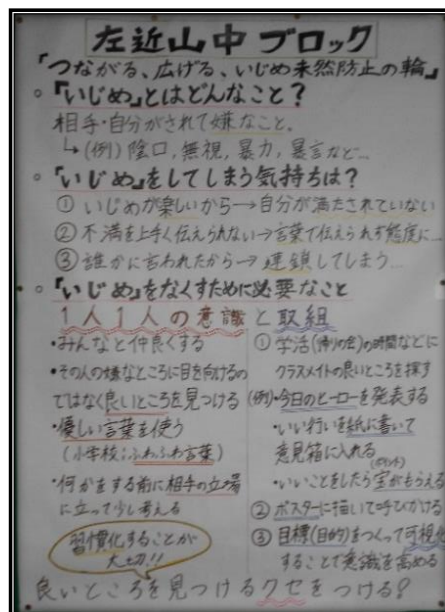 左近山中ブロック
「つながる、広げる、いじめ未然防止の輪」
○「いじめ」とはどんなこと?
相手・自分がされて嫌なこと。
↳(例)陰口,無視,暴力,暴言など…
○「いじめ」をしてしまう気持ちは?
① いじめが楽しいから→自分が満たされていない
② 不満を上手く伝えられない→言葉で伝えられず態度に…
③ 誰かに言われたから→連鎖してしまう…
○「いじめ」をなくすために必要なこと
1人1人の意識と取組
・みんなと仲良くする
・その人の嫌なところに目を向けるの
ではなく良いところを見つける
・優しい言葉を使う
(小学校:ふわふわ言葉)
・何かをする前に相手の立場
に立って少し考える
習慣化することが
大切!!
① 学活(帰りの会)の時間などに
クラスメイトの良いところを探す
(例)・今日のヒーローを発表する
・いい行いを紙に書いて
意見箱に入れる
・いいことをしたら宝がもらえる
② ポスターに描いて呼びかける
③ 目標(目的)をつくって可視化
することで意識を高める
良いところを見つけるクセをつける?